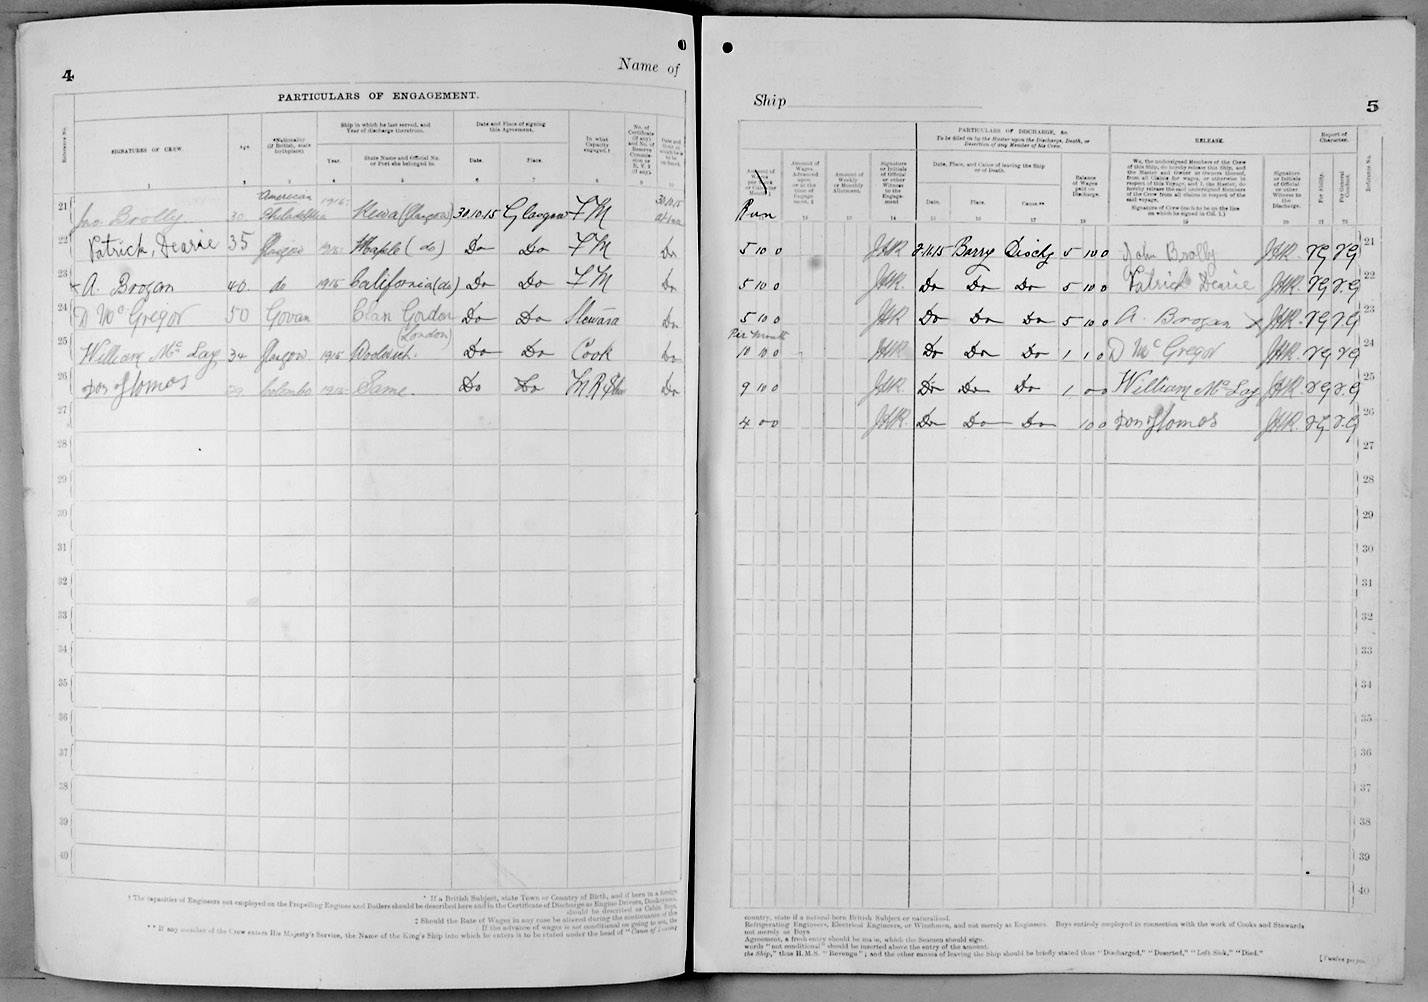 4
Name of
PARTICULARS OF ENGAGEMENT.
Reference No.
SIGNATURES OF CREW.
Age.
*Nationality (if British, state birthplace).
Ship in which he last served, and Year of discharge therefrom.
Year.
State Name and Official No. or Port she belonged to.
Date and Place of signing this Agreement.
Date.
Place.
In what Capacity engaged.†
No. of Certificate (if any) and No. of Reserve Commission or R. V. 2 (if any).
1 2 3 4 5 6 7 8 9 10
21 Jno Brolly 30 American Philadelphia 1915 (Glasgow) 30.10.15 Glasgow F M 30.10.15 at once
22 Patrick, Dearie 35 Glasgow 1915 (do) Do Do F M Do
23 A. Brogan 40 do 1915 California (do) Do Do F M Do
24 D McGregor 50 Govan Clan Gordon (London) Do Do Steward Do
25 William McLay 34 Glasgow 1915 Woolwich. Do Do Cook Do
26 Colombo 1915 Same. Do Do Do
27
28
29
30
31
32
33
34
35
36
37
38
39
40
* If a British Subject, state Town or Country of Birth, and if born in a foreign
† The capacities of Engineers not employed on the Propelling Engines and Boilers should be described here and in the Certificate of Discharge as Engine Drivers, Donkeymen,
should be described as Cabin Boys.
‡ Should the Rate of Wages in any case be altered during the continuance of the
: If the advance of wages is not conditional on going to sea, the
** If any member of the Crew enters His Majesty's Service, the Name of the King's Ship into which he enters is to be stated under the head of "Cause of Leaving
Ship
5
PARTICULARS OF DISCHARGE, &c.
To be filled in by the Master upon the Discharge, Death, or Desertion of any Member of his Crew.
RELEASE.
Report of Character.
Reference No.
Amount of Wages Advanced upon or in the time of Engagement. ‡
Amount of Weekly or Monthly Allotment.
Signature or Initials of Official or other Witness to the Engagement
Date, Place, and Cause of leaving the Ship or of Death.
Date.
Place.
Cause.**
Balance of Wages paid on Discharge.
We, the undersigned Members of the Crew of this Ship, do hereby release this Ship, and the Master and Owner or Owners thereof, from all Claims for wages, or otherwise in respect of this Voyage, and I, the Master, do hereby release the said undersigned Members of the Crew from all claims in respect of the said voyage.
Signature of Crew (each to be on the line on which he signed in Col. 1.)
Signature or Initials of Official or other Witness to the Discharge.
For Ability.
For General Conduct.
12 13 14 15 16 17 18 19 20 21 22
Run
5 10 0 JHR 8.11.15 Barry Dischg 5 10 0 John Brolly JHR. VG VG 21
5 10 0 JHR. Do Do Do 5 10 0 Patrick Dearie JHR. VG V.G 22
5 10 0 JHR Do Do Do 5 10 0 A. Brogan JHR. VG VG 23
Per Month
10 10 0 JHR Do Do Do 1 1 0 D McGregor JHR. VG VG 24
9 10 0 JHR. Do Do Do 1 0 0 William McLay JHR. VG V.G 25
4 0 0 JHR. Do Do Do 10 0 JHR. VG V.G 26
27
28
29
30
31
32
33
34
35
36
37
38
39
40
country, state if a natural born British Subject or naturalised.
Refrigerating Engineers, Electrical Engineers, or Winchmen, and not merely as Engineers. Boys entirely employed in connection with the work of Cooks and Stewards
not merely as Boys
Agreement, a fresh entry should be made, which the Seamen should sign.
words "not conditional" should be inserted above the entry of the amount.
the Ship," thus H.M.S. "Revenge"; and the other causes of leaving the Ship should be briefly stated thus "Discharged," "Deserted," "Left Sick," "Died."